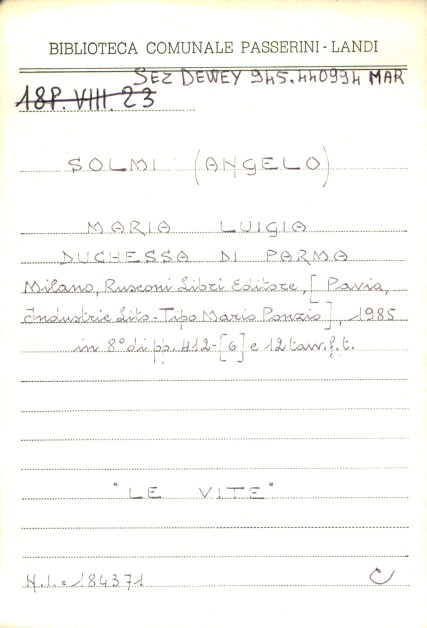 BIBLIOTECA COMUNALE PASSERINI - LANDI
SEZ DEWEY 945.440994 MAR
18P. VIII. 23
SOLMI (ANGELO)
MARIA LUIGIA
DUCHESSA DI PARMA
Milano, Rusconi Libri Editore, [Pavia,
Industrie Lito-Tipo Mario Ponzio], 1985
in 8° di pp. 412-[6] e 12 tav. f. t.
"LE VITE"
N.I. = 184371